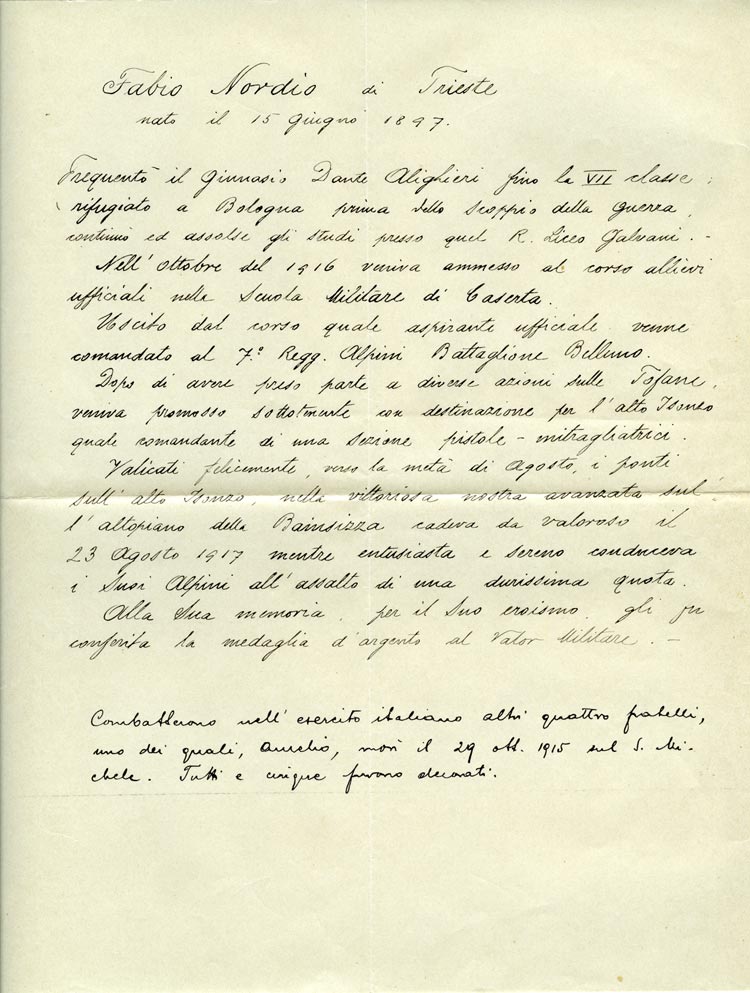 Fabio Nordio di Trieste
nato il 15 giugno 1897.
Frequentò il Ginnasio Dante Alighieri fino la VII classe;
rifugiato a Bologna prima dello scoppio della guerra,
continuò ed assolse gli studi presso quel R. Liceo Galvani. -
Nell' Ottobre del 1916 veniva ammesso al corso allievi
ufficiali nella Scuola Militare di Caserta.
Uscito dal corso quale aspirante ufficiale venne
comandato al 7.º Regg. Alpini Battaglione Belluno.
Dopo di avere preso parte a diverse azioni sulle Tofane,
veniva promosso sottotenente con destinazione per l'alto Isonzo
quale comandante di una sezione pistole - mitragliatrici.
Valicati felicemente, verso la metà di Agosto, i ponti
sull' alto Isonzo, nella vittoriosa nostra avanzata sul-
l'altopiano della Bainsizza cadeva da valoroso il
23 Agosto 1917 mentre entusiasta e sereno conduceva
i Suoi Alpini all'assalto di una durissima quota.
Alla Sua memoria, per il Suo eroismo, gli fu
conferita la medaglia d'argento al Valor Militare. -
Combatterono nell' esercito italiano altri quattro fratelli,
uno dei quali, Aurelio, morì il 29 ott. 1915 sul S. Mi-
chele. Tutti e cinque furono decorati.